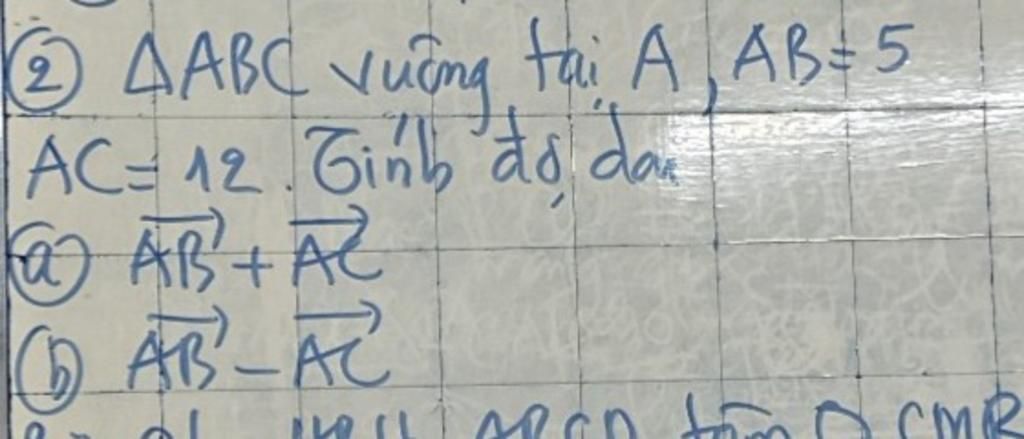 ② ΔABC vuông tại A, AB = 5
AC = 12. Tính độ dài
ⓐ $\overrightarrow{AB} + \overrightarrow{AC}$
ⓑ $\overrightarrow{AB} - \overrightarrow{AC}$
ABCD tâm O CMR